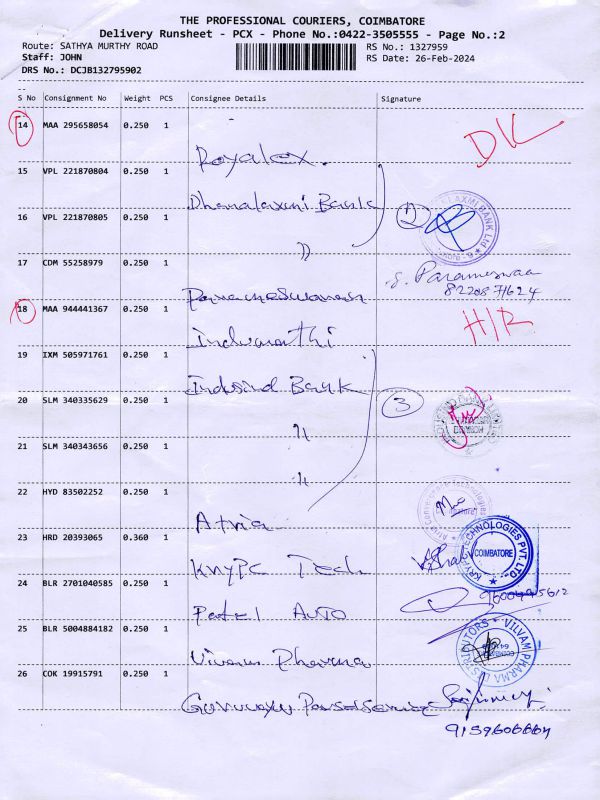 THE PROFESSIONAL COURIERS, COIMBATORE
Delivery Runsheet - PCX - Phone No.:0422-3505555 - Page No.:2
Route: SATHYA MURTHY ROAD
RS No.: 1327959
Staff: JOHN
RS Date: 26-Feb-2024
DRS No.: DCJB132795902
S No Consignment No Weight PCS Consignee Details Signature
14 MAA 295658054 0.250 1 Royalex. DK
15 VPL 221870804 0.250 1 Dhanalaxmi Bank
16 VPL 221870805 0.250 1 " 2
17 CDM 55258979 0.250 1 Parameswaran S. Parameswaa
8220871624
18 MAA 944441367 0.250 1 Indumathi H/R
19 IXM 505971761 0.250 1 Indusind Bank
20 SLM 340335629 0.250 1 " 3
21 SLM 340343656 0.250 1 "
22 HYD 83502252 0.250 1 Atria
23 HRD 20393065 0.360 1 Krypc Tech
COIMBATORE
24 BLR 2701040585 0.250 1 Patel Auto
25 BLR 5004884182 0.250 1 Pharma
DISTRIBUTORS * VILVAM PHARMA
26 COK 19915791 0.250 1
9159606667